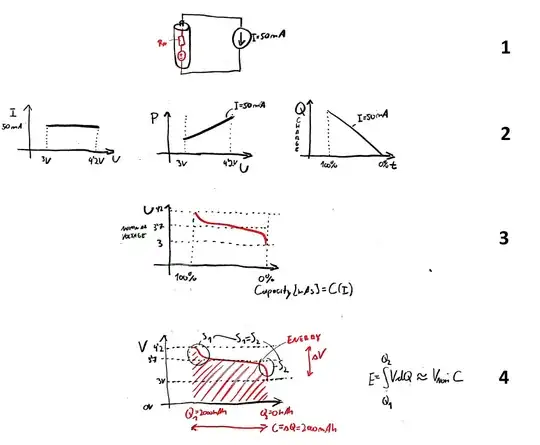 I=50mA
1
I
50mA
3V
4'2V
U
P
I=50mA
3V
4'2V
U
Q
CHARGE
I=50mA
100%
0%
t
2
U
4'2
3'7
3
VOLTAGE
100%
0%
Capacity[mAs]=C(I)
3
V
4'2
3'7
3V
0V
S1
S1=S2
S2
ENERGY
ΔV
Q1=2000mAh
Q2=0mAh
C=ΔQ=2000mAh
E=∫VdQ≈Vnom C
Q2
Q1
4